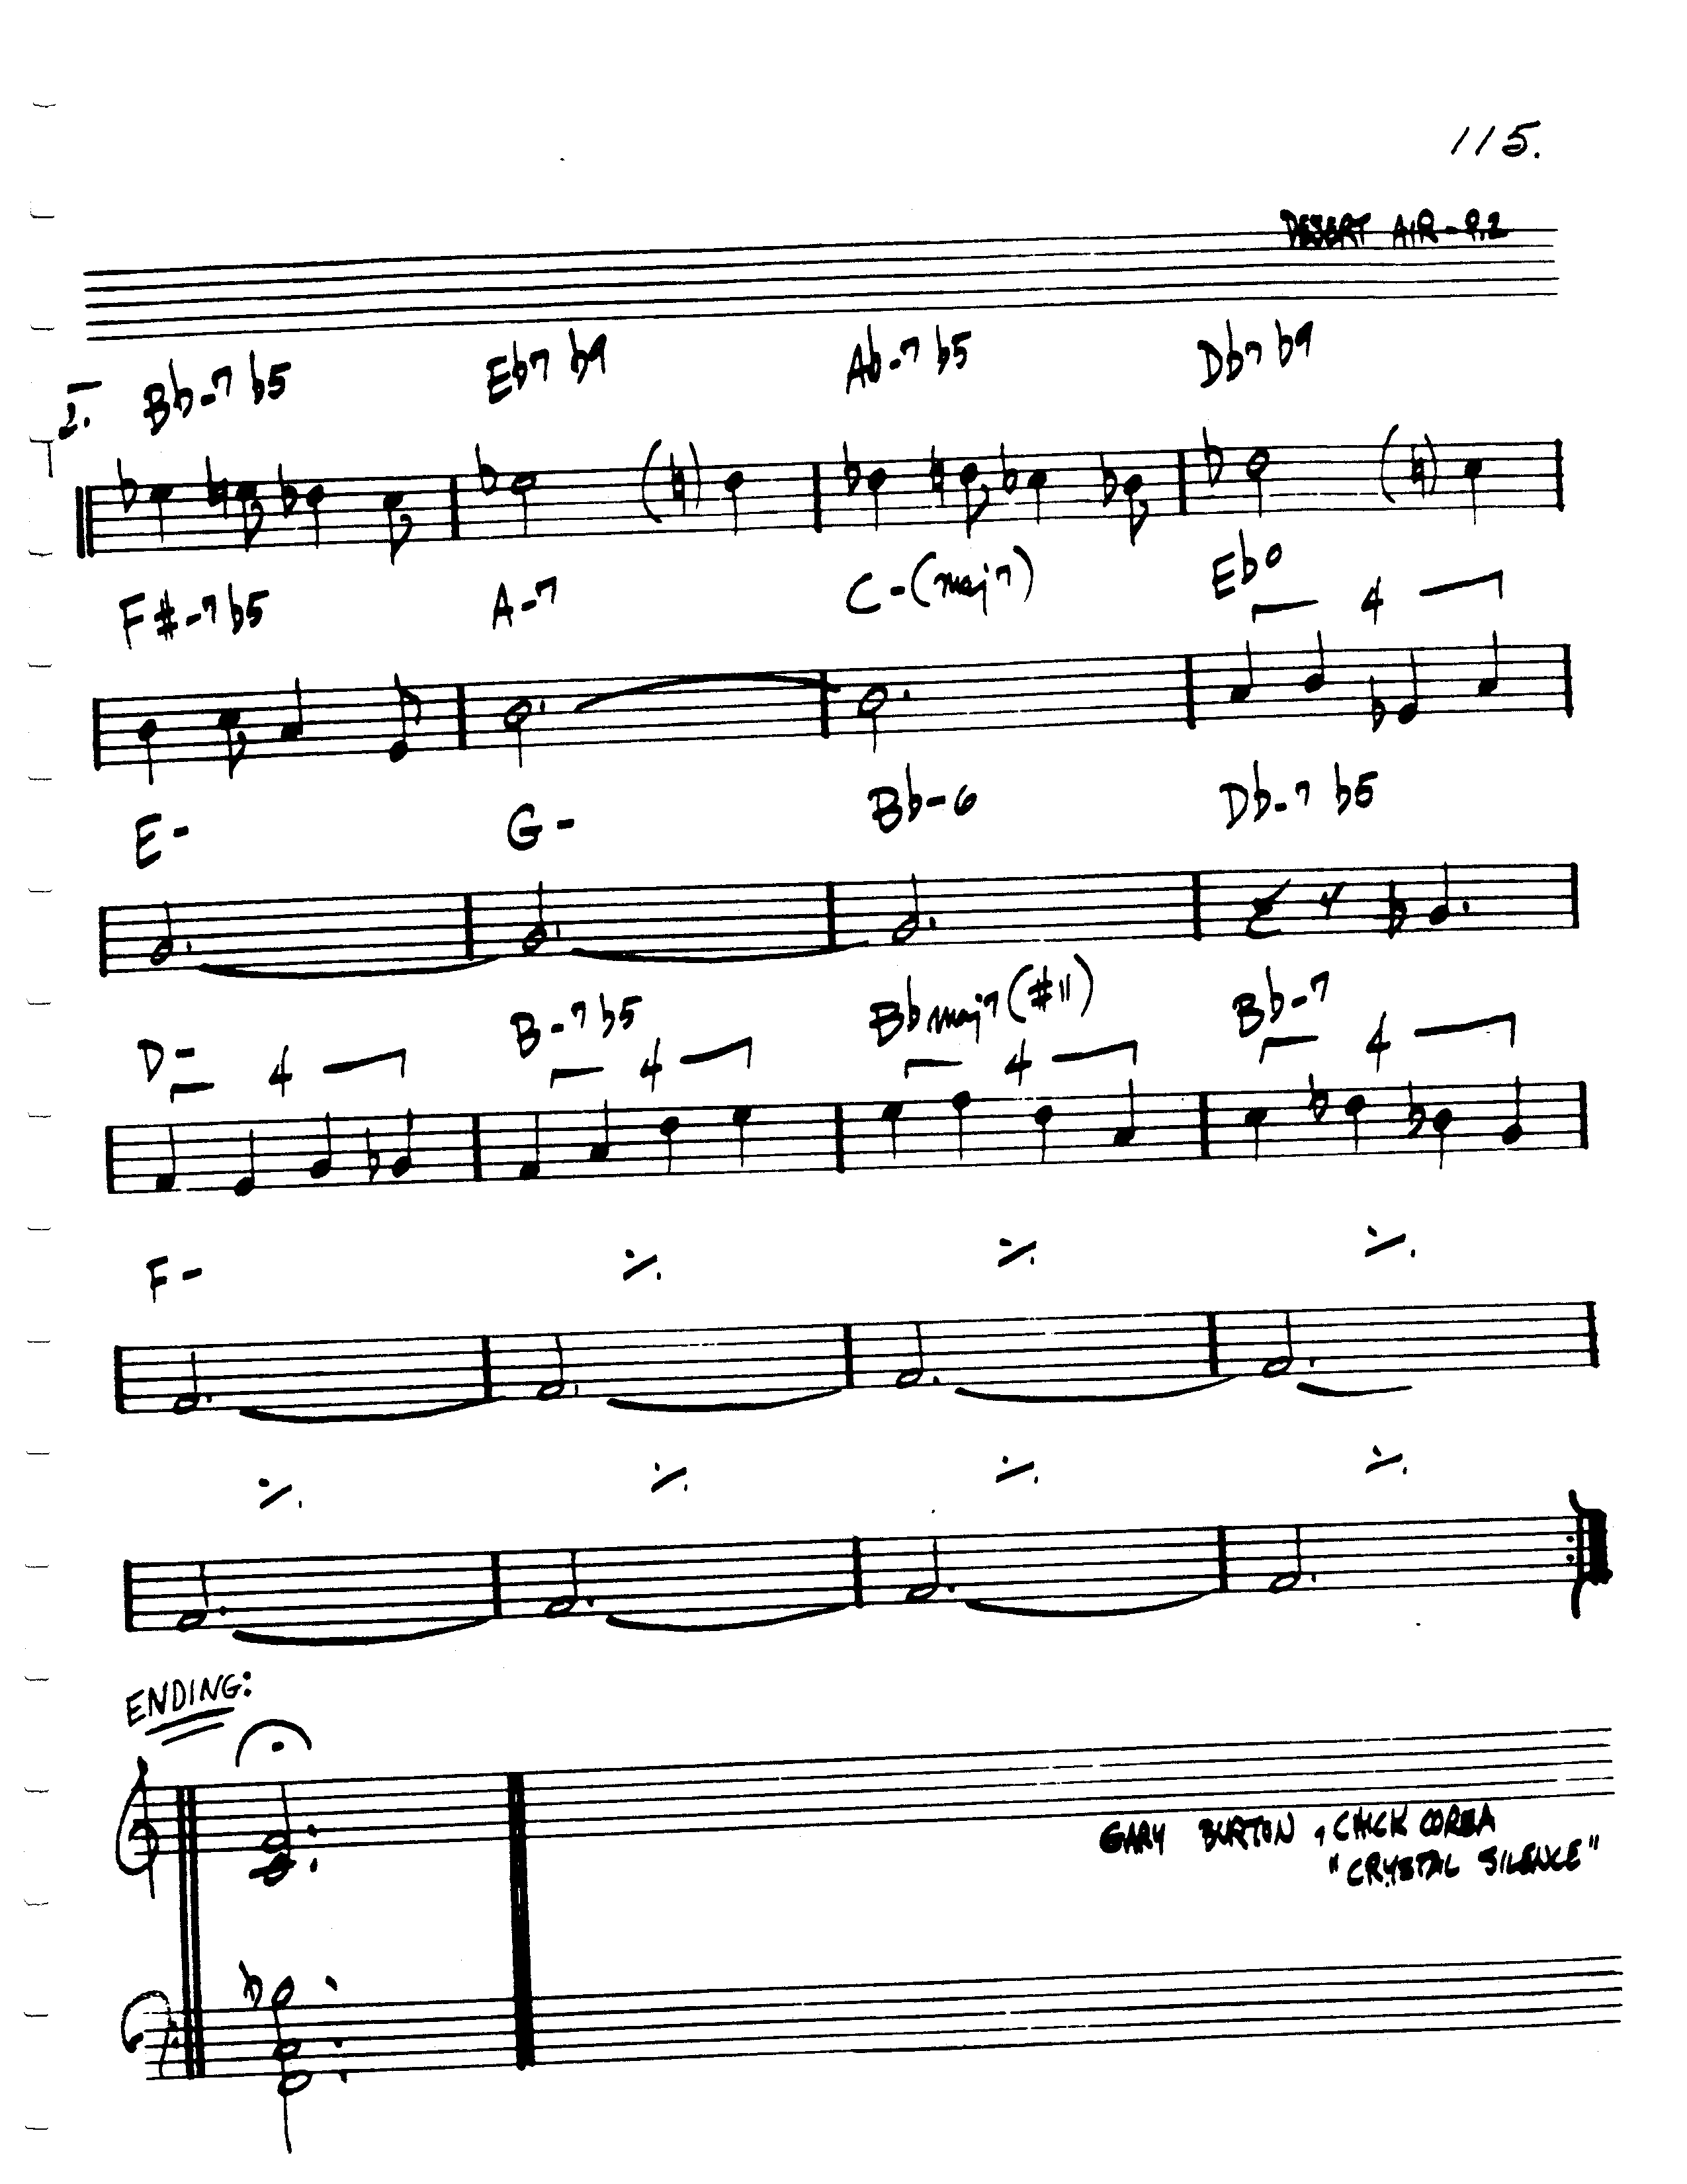 115.
DESERT AIR - P.2
2. Bb-7 b5 Eb7 b9 Ab-7 b5 Db7 b9
F#-7 b5 A-7 C-(maj7) Eb°
4
E- G- Bb-6 Db-7 b5
D- B-7 b5 Bbmaj7(#11) Bb-7
4 4 4 4
F- ٪ ٪ ٪
٪ ٪ ٪ ٪
ENDING:
GARY BURTON, CHICK COREA
"CRYSTAL SILENCE"